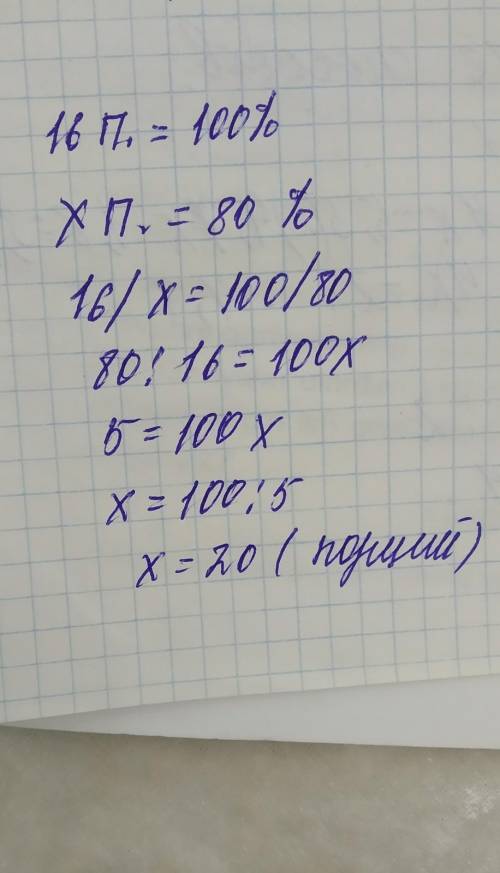 16 П. = 100%
х П. = 80 %
16/ х = 100/80
80 : 16 = 100х
5 = 100 х
х = 100 : 5
х = 20 ( порций)